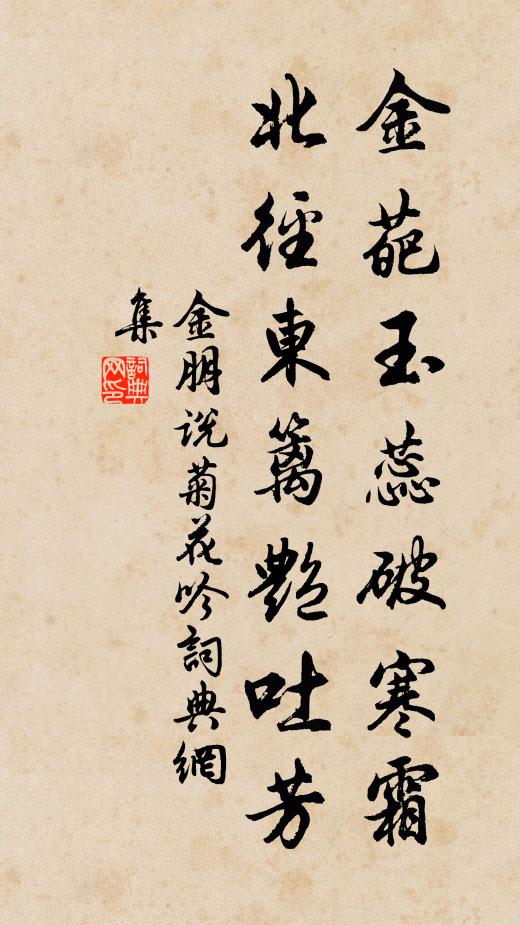 金葩玉蕊破寒霜
北徑東籬艷吐芳
金朋说菊花吟詞典網
集
詞典
网印